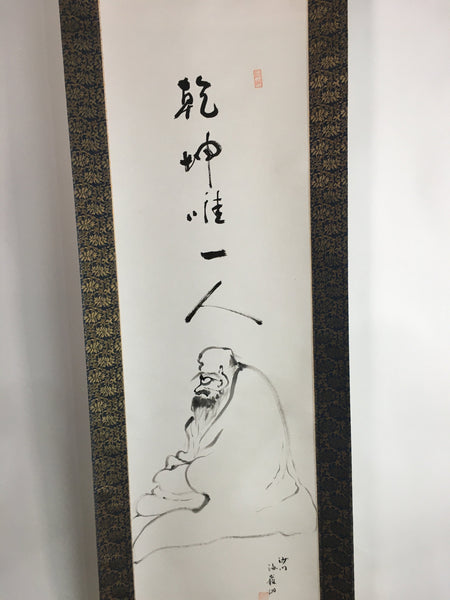 乾坤唯一人